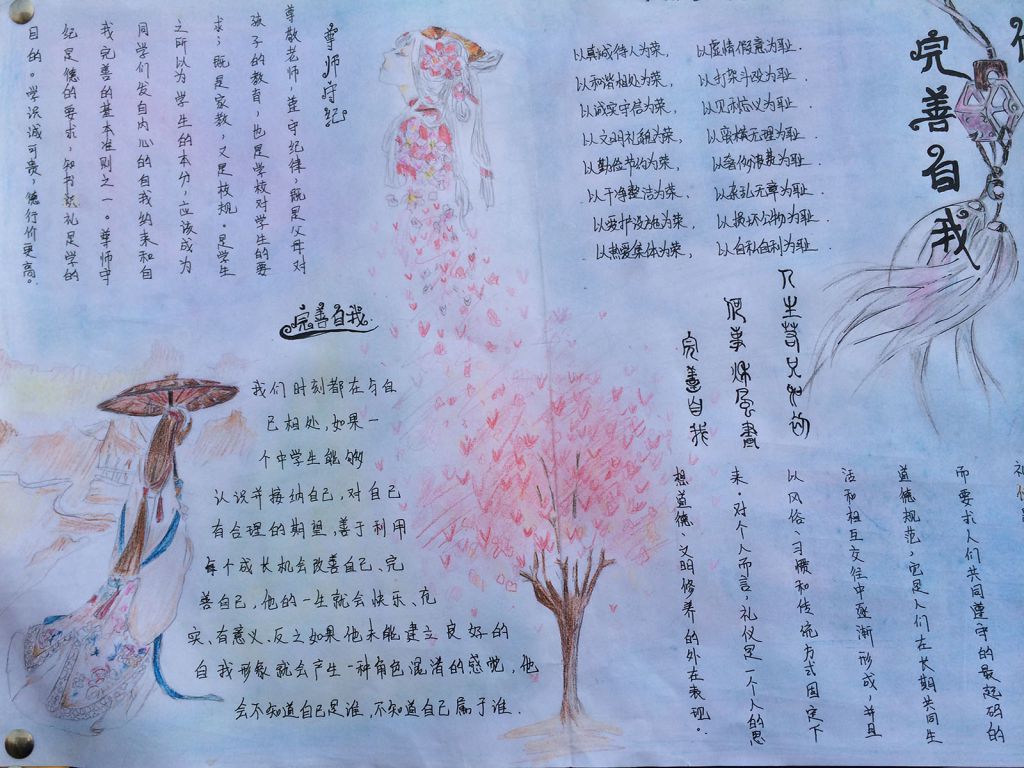 完善自我
以真诚待人为荣，以虚情假意为耻．
以和谐相处为荣，以打架斗殴为耻．
以诚实守信为荣，以见利忘义为耻．
以文明礼貌为荣，以蛮横无理为耻．
以勤俭节约为荣，以奢侈浪费为耻．
以干净整洁为荣，以杂乱无章为耻．
以爱护设施为荣，以损坏公物为耻．
以热爱集体为荣，以自私自利为耻．
尊师守纪
尊敬老师，遵守纪律，既是父母对
孩子的教育，也是学校对学生的要
求；既是家教，又是校规。是学生
之所以为学生的本分，应该成为
同学们发自内心的自我约束和自
我完善的基本准则之一。尊师守
纪是德的要求，知书识礼是学的
目的。学识诚可贵，德行价更高。
完善自我
我们时刻都在与自
己相处，如果一
个中学生能够
认识并接纳自己，对自己
有合理的期望，善于利用
每个成长机会改善自己、完
善自己，他的一生就会快乐、充
实、有意义、反之如果他未能建立良好的
自我形象就会产生一种角色混淆的感觉，他
会不知道自己是谁，不知道自己属于谁．
人生若只如初
何事秋风悲画
完善自我
而要求人们共同遵守的最起码的
道德规范，它是人们在长期共同生
活和相互交往中逐渐形成，并且
以风俗、习惯和传统方式固定下
来．对个人而言，礼仪是一个人的思
想道德、文明修养的外在表现。